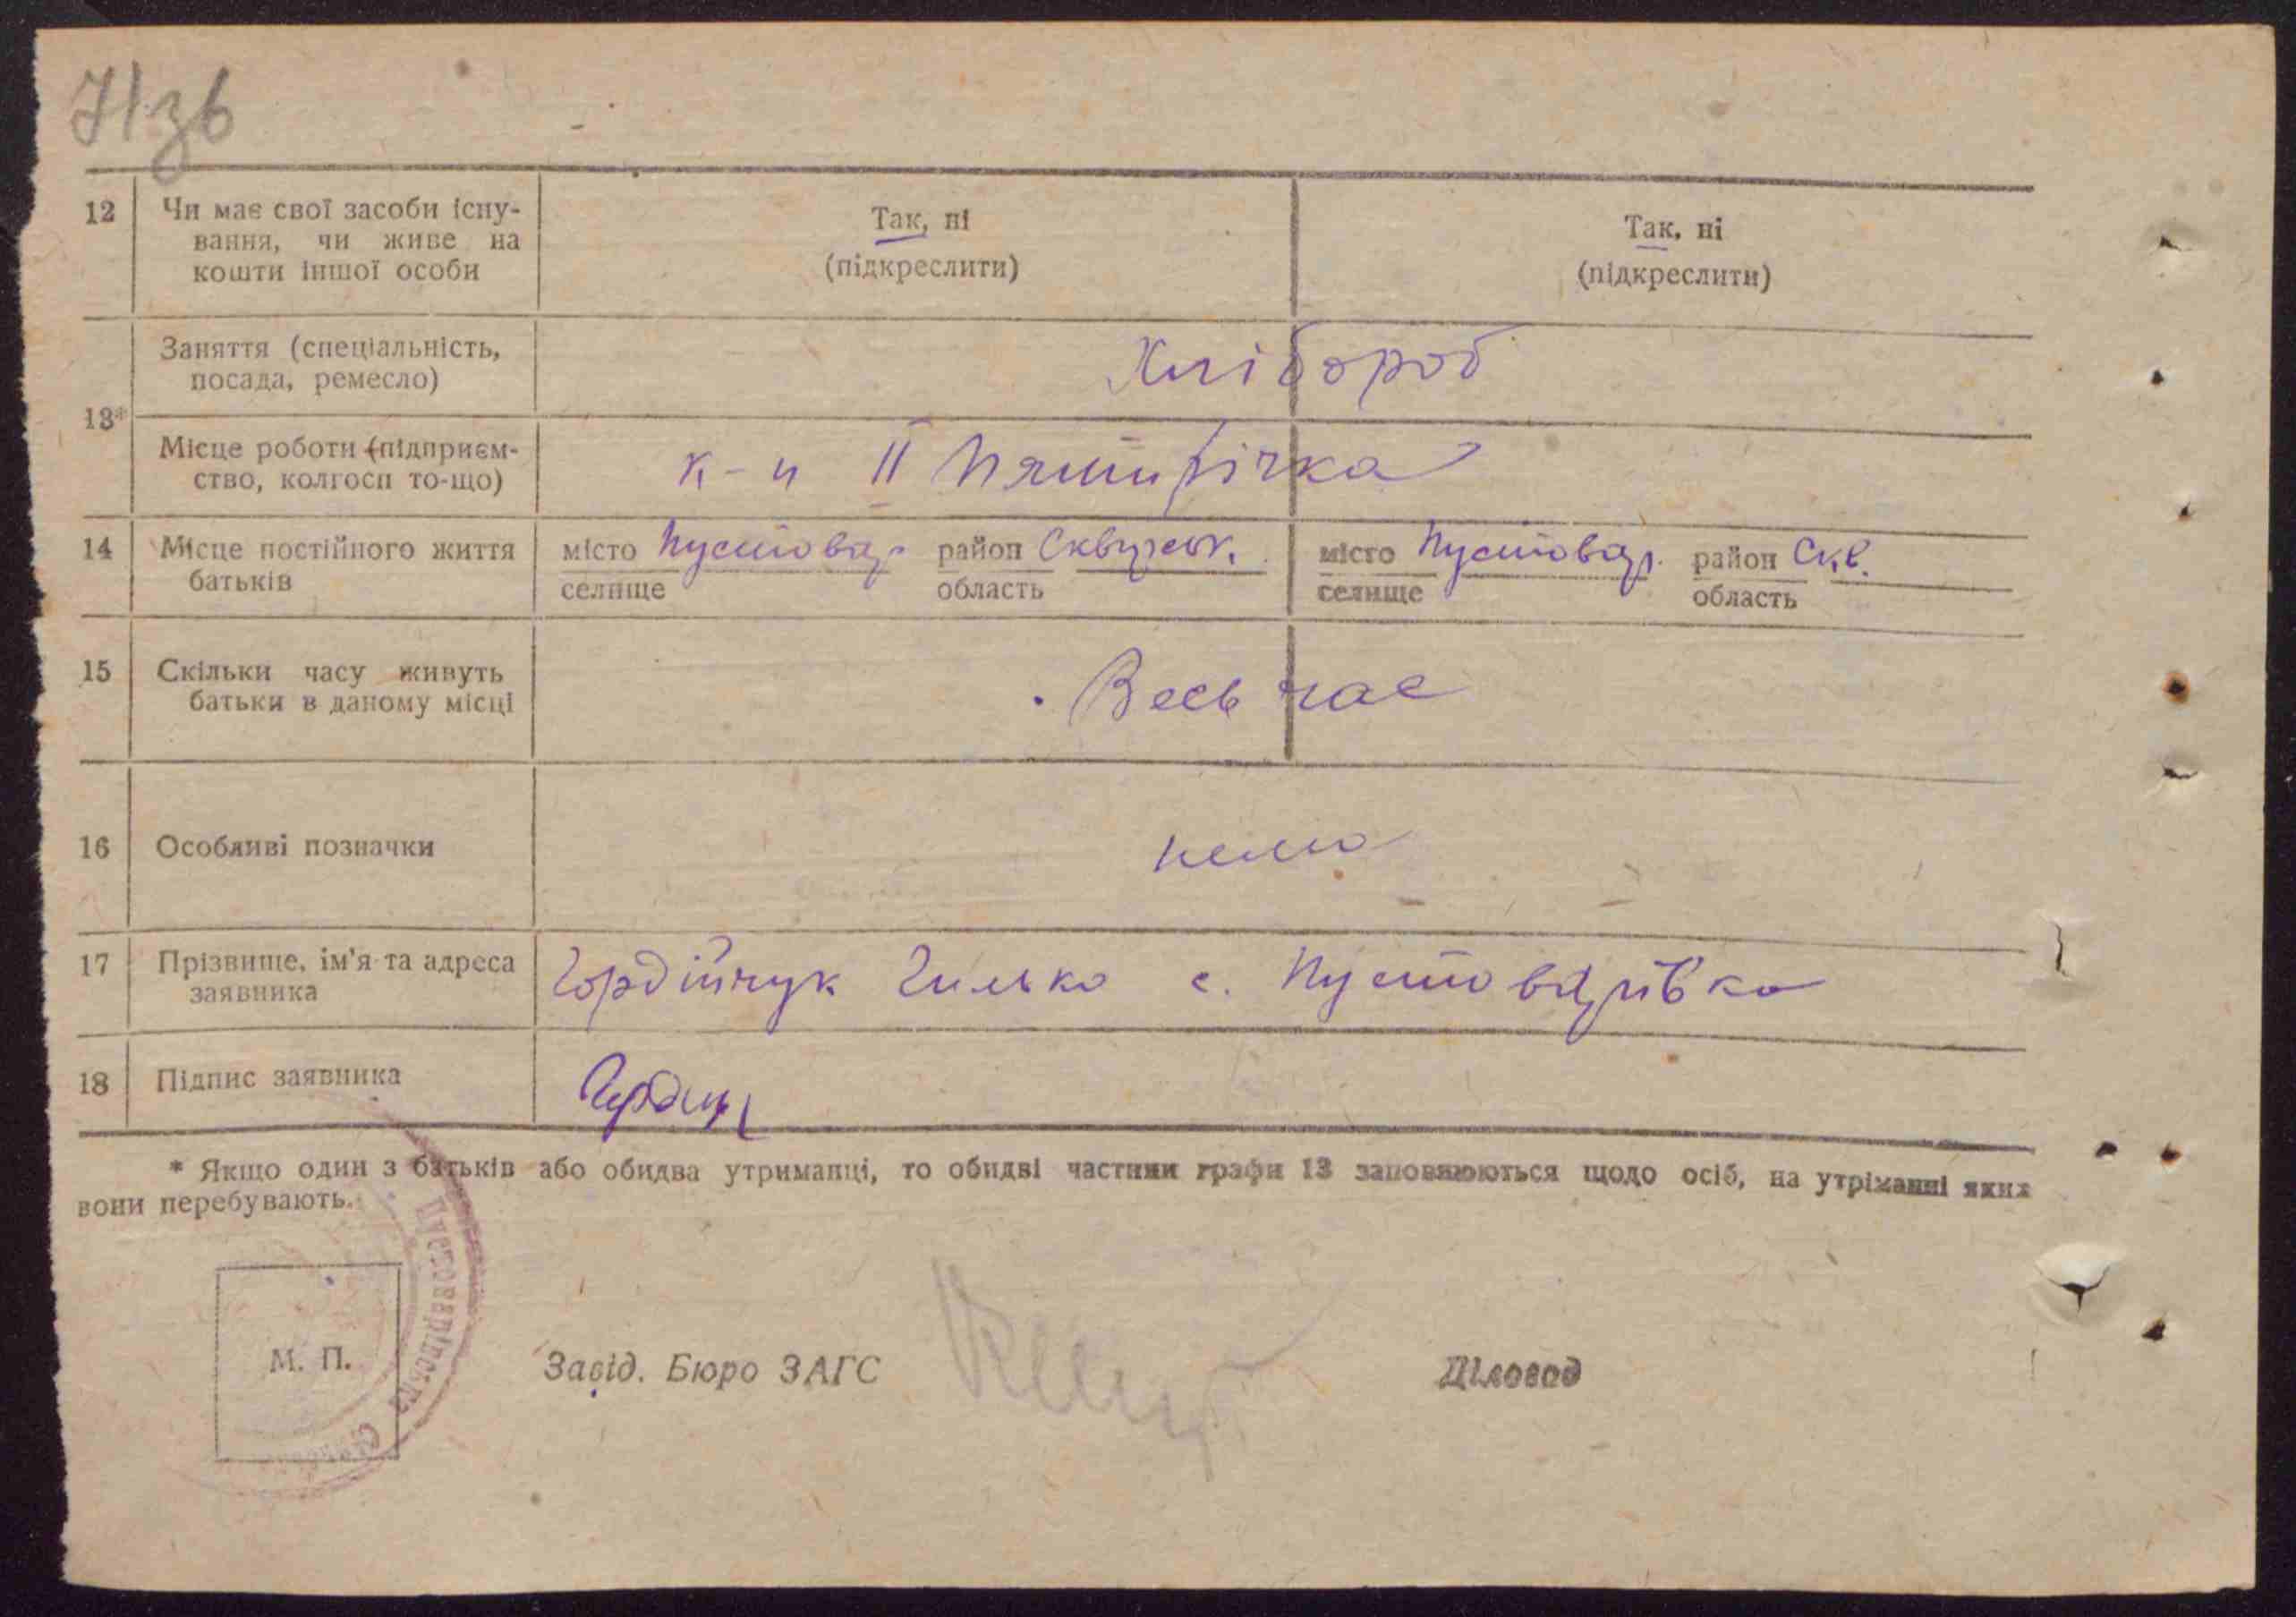 71зв
12 Чи має свої засоби існу-
вання, чи живе на
кошти іншої особи
Так, ні
(підкреслити)
Так, ні
(підкреслити)
13*
Заняття (спеціальність,
посада, ремесло)
Хлібороб
Місце роботи (підприєм-
ство, колгосп то-що)
к-п ІІ Пятирічка
14 Місце постійного життя
батьків
місто Пустовар. район Сквирськ.
селище область
місто Пустовар. район Скв.
селище область
15 Скільки часу живуть
батьки в даному місці
Весь час
16 Особливі позначки
нема
17 Прізвище, ім'я та адреса
заявника
Гордійчук Гилько с. Пустоварівка
18 Підпис заявника
* Якщо один з батьків або обидва утриманці, то обидві частини графи 13 заповнюються щодо осіб, на утріманні яких
вони перебувають.
Пустоварівська
М. П.
Завід. Бюро ЗАГС
Діловод